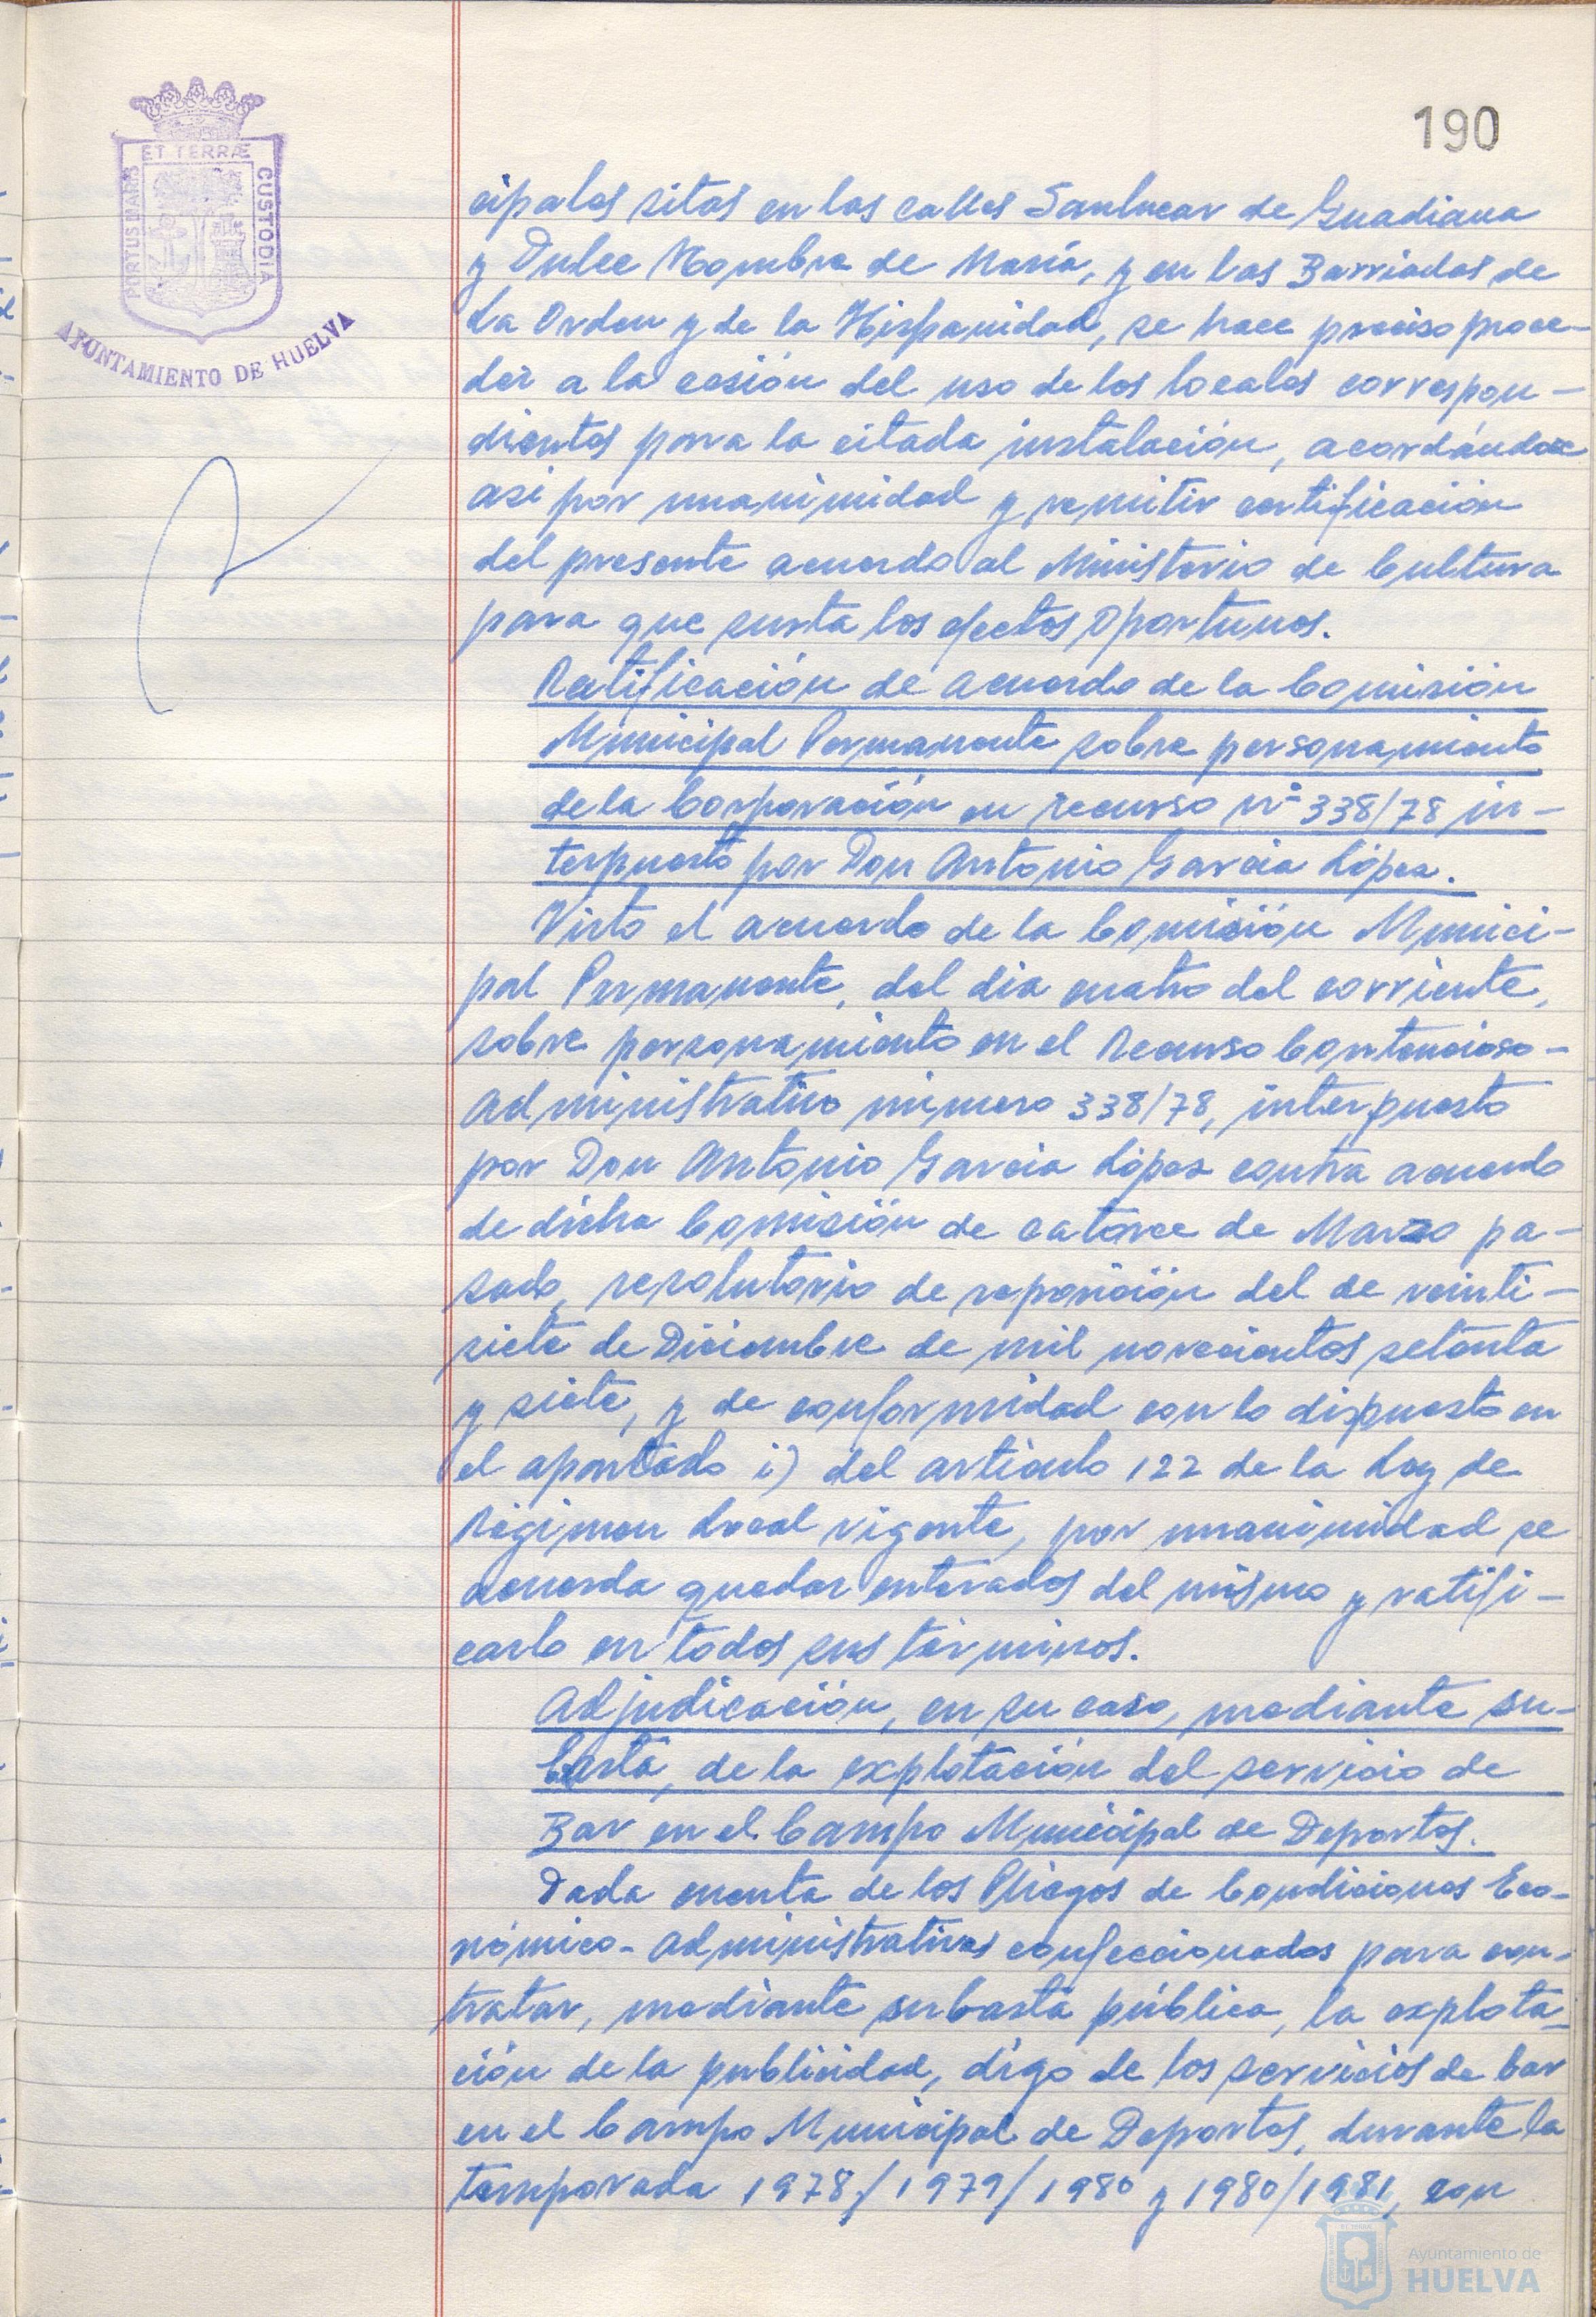 190
ET TERRÆ
PORTUS MARIS
CUSTODIA
AYUNTAMIENTO DE HUELVA
cipales sitas en las calles Sanlucar de Guadiana
y Dulce Nombre de María, y en las Barriadas de
La Orden y de la Hispanidad, se hace preciso proce-
der a la cesión del uso de los locales correspon-
dientes para la citada instalación, acordándose
asi por unanimidad y remitir certificación
del presente acuerdo al Ministerio de Cultura
para que surta los efectos oportunos.
Ratificación de acuerdo de la Comisión
Municipal Permanente sobre personamiento
de la Corporación en recurso nº 338/78 in-
terpuesto por Don Antonio Garcia López.
Visto el acuerdo de la Comisión Munici-
pal Permanente, del dia cuatro del corriente,
sobre personamiento en el Recurso Contencioso-
administrativo número 338/78, interpuesto
por Don Antonio Garcia López contra acuerdo
de dicha Comisión de catorce de Marzo pa-
sado, resolutorio de reposición del de veinti-
siete de Diciembre de mil novecientos setenta
y siete, y de conformidad con lo dispuesto en
el apartado i) del artículo 122 de la Ley de
Régimen Local vigente, por unanimidad se
acuerda quedar enterados del mismo y ratifi-
carlo en todos sus términos.
Adjudicación, en su caso, mediante su-
basta, de la explotación del servicio de
Bar en el Campo Municipal de Deportes.
Dada cuenta de los Pliegos de Condiciones Eco-
nómico-administrativas confeccionados para con-
tratar, mediante subasta pública, la explota-
ción de la publicidad, digo de los servicios de bar
en el Campo Municipal de Deportes, durante la
temporada 1978/1979/1980 y 1980/1981, con
Ayuntamiento de
HUELVA